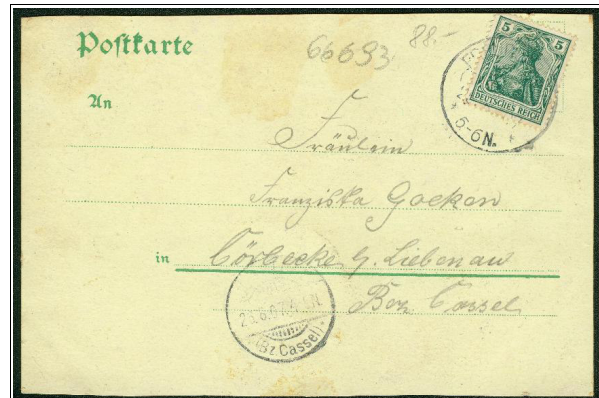 Postkarte
66693
88.-
5 5
DEUTSCHES REICH
5-6N.
An
Fräulein
Franziska Goeken
in Körbecke b. Liebenau
Bez Cassel
(Bz Cassel)